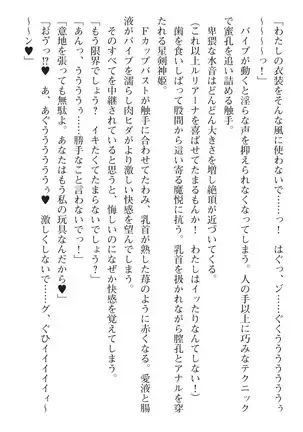 「わたしの衣装をそんな風に使わないで……っ！　はぐっ、ゾ、ぐくうううううぅぅ
～～～～っ！」
バイブが動くと淫らな声を抑えられなくなってしまう。人の手以上に巧みなテクニック
で蜜孔を追い詰める触手。
卑猥な水音はどんどん大きさを増し絶頂が近づいてくる。
（これ以上ルリアーナを喜ばせてたまるもんか！　わたしはイッたりなんてしない！）
歯を食いしばって股間から這い寄る魔悦に抗う。乳首を扱かれながら膣孔とアナルを穿
たれる星剣神姫。
Ｆカップバストが触手に合わせてたわみ、乳首が熟した苺のように赤くなる。愛液と腸
液がバイブを濡らし肉ヒダがより激しい快感を望んでしまう。
そのすべてを中継されていると思うと、悔しいのになぜか快感を覚えてしまう。
「もう限界でしょう？　イキたくてたまらないでしょう？」
「あんっ、うううぅぅ……勝手なこと言わないでっ！」
「意地を張っても無駄よ。あなたはもう私の玩具なんだから♥」
「おヴっ!?♥　あ、あぐうううううぅ♥　激しくしないで……グ、ぐひイイイイイィ～
～ン♥」